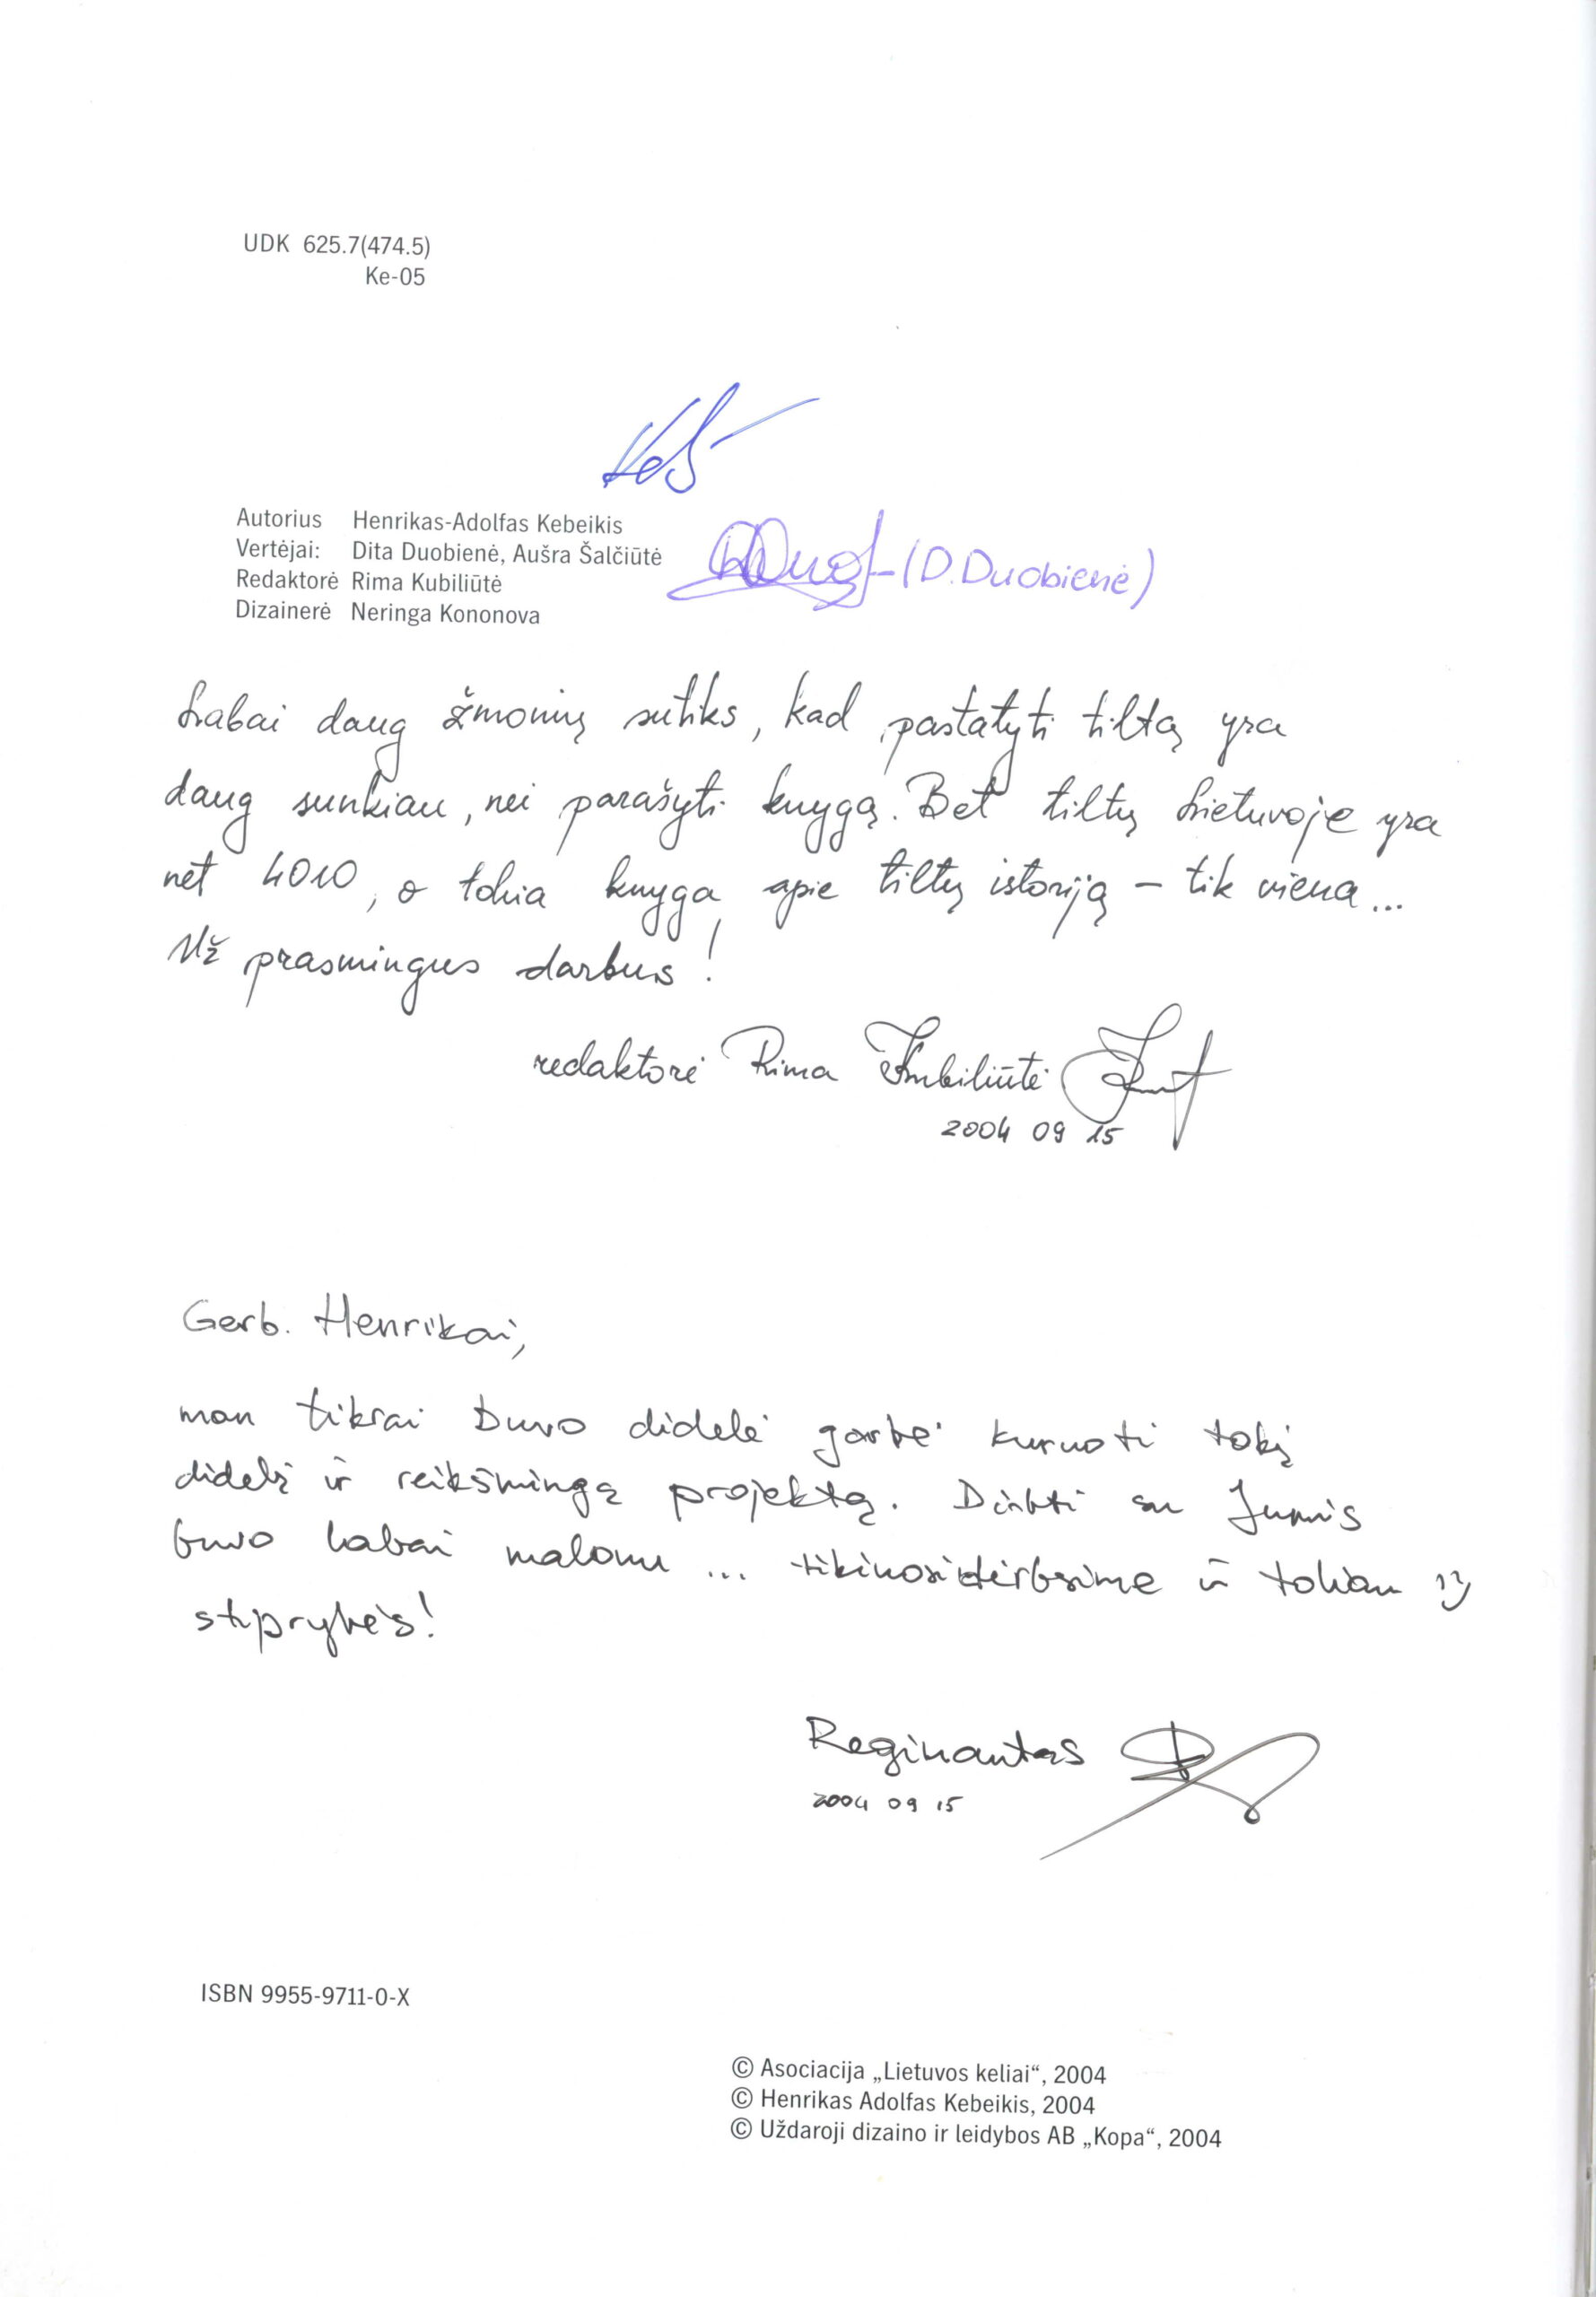 UDK 625.7(474.5)
Ke-05
Autorius Henrikas-Adolfas Kebeikis
Vertėjai: Dita Duobienė, Aušra Šalčiūtė
Redaktorė Rima Kubiliūtė
Dizainerė Neringa Kononova
(D. Duobienė)
Labai daug žmonių sutiks, kad pastatyti tiltą yra
daug sunkiau, nei parašyti knygą. Bet tiltų Lietuvoje yra
net 4010, o tokia knyga apie tiltų istoriją – tik viena...
Už prasmingus darbus!
redaktorė Rima Kubiliūtė
2004 09 15
Gerb. Henrikai,
man tikrai buvo didelė garbė kuruoti tokį
didelį ir reikšmingą projektą. Dirbti su Jumis
buvo labai malonu ... tikiuosi dirbsime ir toliau :)
stiprybės!
Reginantas
2004 09 15
ISBN 9955-9711-0-X
© Asociacija „Lietuvos keliai“, 2004
© Henrikas Adolfas Kebeikis, 2004
© Uždaroji dizaino ir leidybos AB „Kopa“, 2004